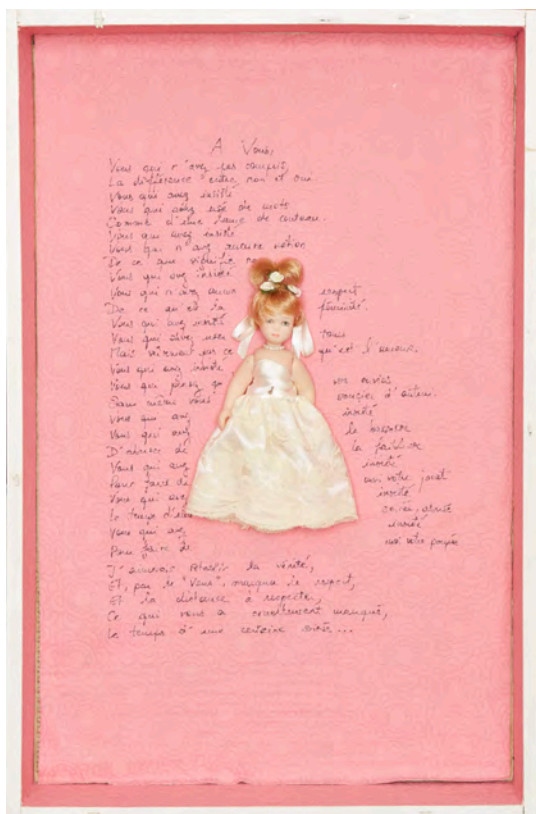 A Vous,
Vous qui n'avez pas compris,
La différence entre non et oui.
Vous qui avez insisté
Vous qui avez usé de mots
Comme d'une lame de couteau.
Vous qui avez insisté
Vous qui n'avez aucune notion
De ce que signifie no
Vous qui avez insisté
Vous qui n'avez aucun respect
De ce qu'est la féminité.
Vous qui avez insisté
Vous qui savez user
Mais sûrement pas ce qu'est l'amour.
Vous qui avez insisté
Vous qui pensez qu vos envies
Sans même vous soucier d'autrui.
Vous qui avez insisté
Vous qui avez le
D'abuser de la faiblesse
Vous qui avez insisté
Pour faire de moi votre jouet
Vous qui avez insisté
Le temps d'une
Vous qui avez insisté
Pour faire de moi votre poupée
J'aimerais rétablir la vérité,
Et, par le "Vous", marquer le respect,
Et la distance à respecter,
Ce qui vous a cruellement manqué,
Le temps d'une certaine soirée...